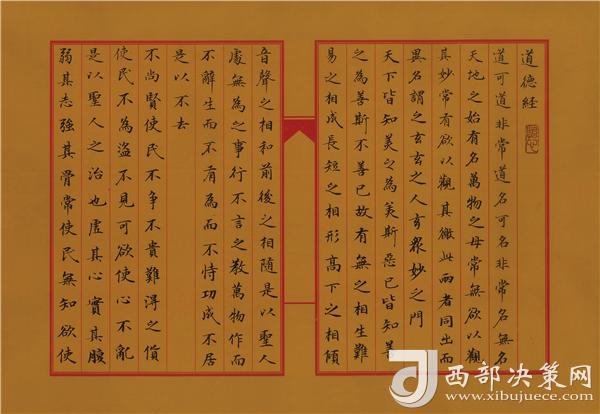 道德經
道可道非常道名可名非常名無名
天地之始有名萬物之母常無欲以觀
其妙常有欲以觀其徼此兩者同出而
異名謂之玄玄之又玄眾妙之門
天下皆知美之為美斯惡已皆知善
之為善斯不善已故有無之相生難
易之相成長短之相形高下之相傾
音聲之相和前後之相隨是以聖人
處無為之事行不言之教萬物作而
不辭生而不有為而不恃功成不居
是以不去
不尚賢使民不爭不貴難得之貨
使民不為盜不見可欲使心不亂
是以聖人之治也虛其心實其腹
弱其志強其骨常使民無知欲使
西部决策网
www.xibujuece.com